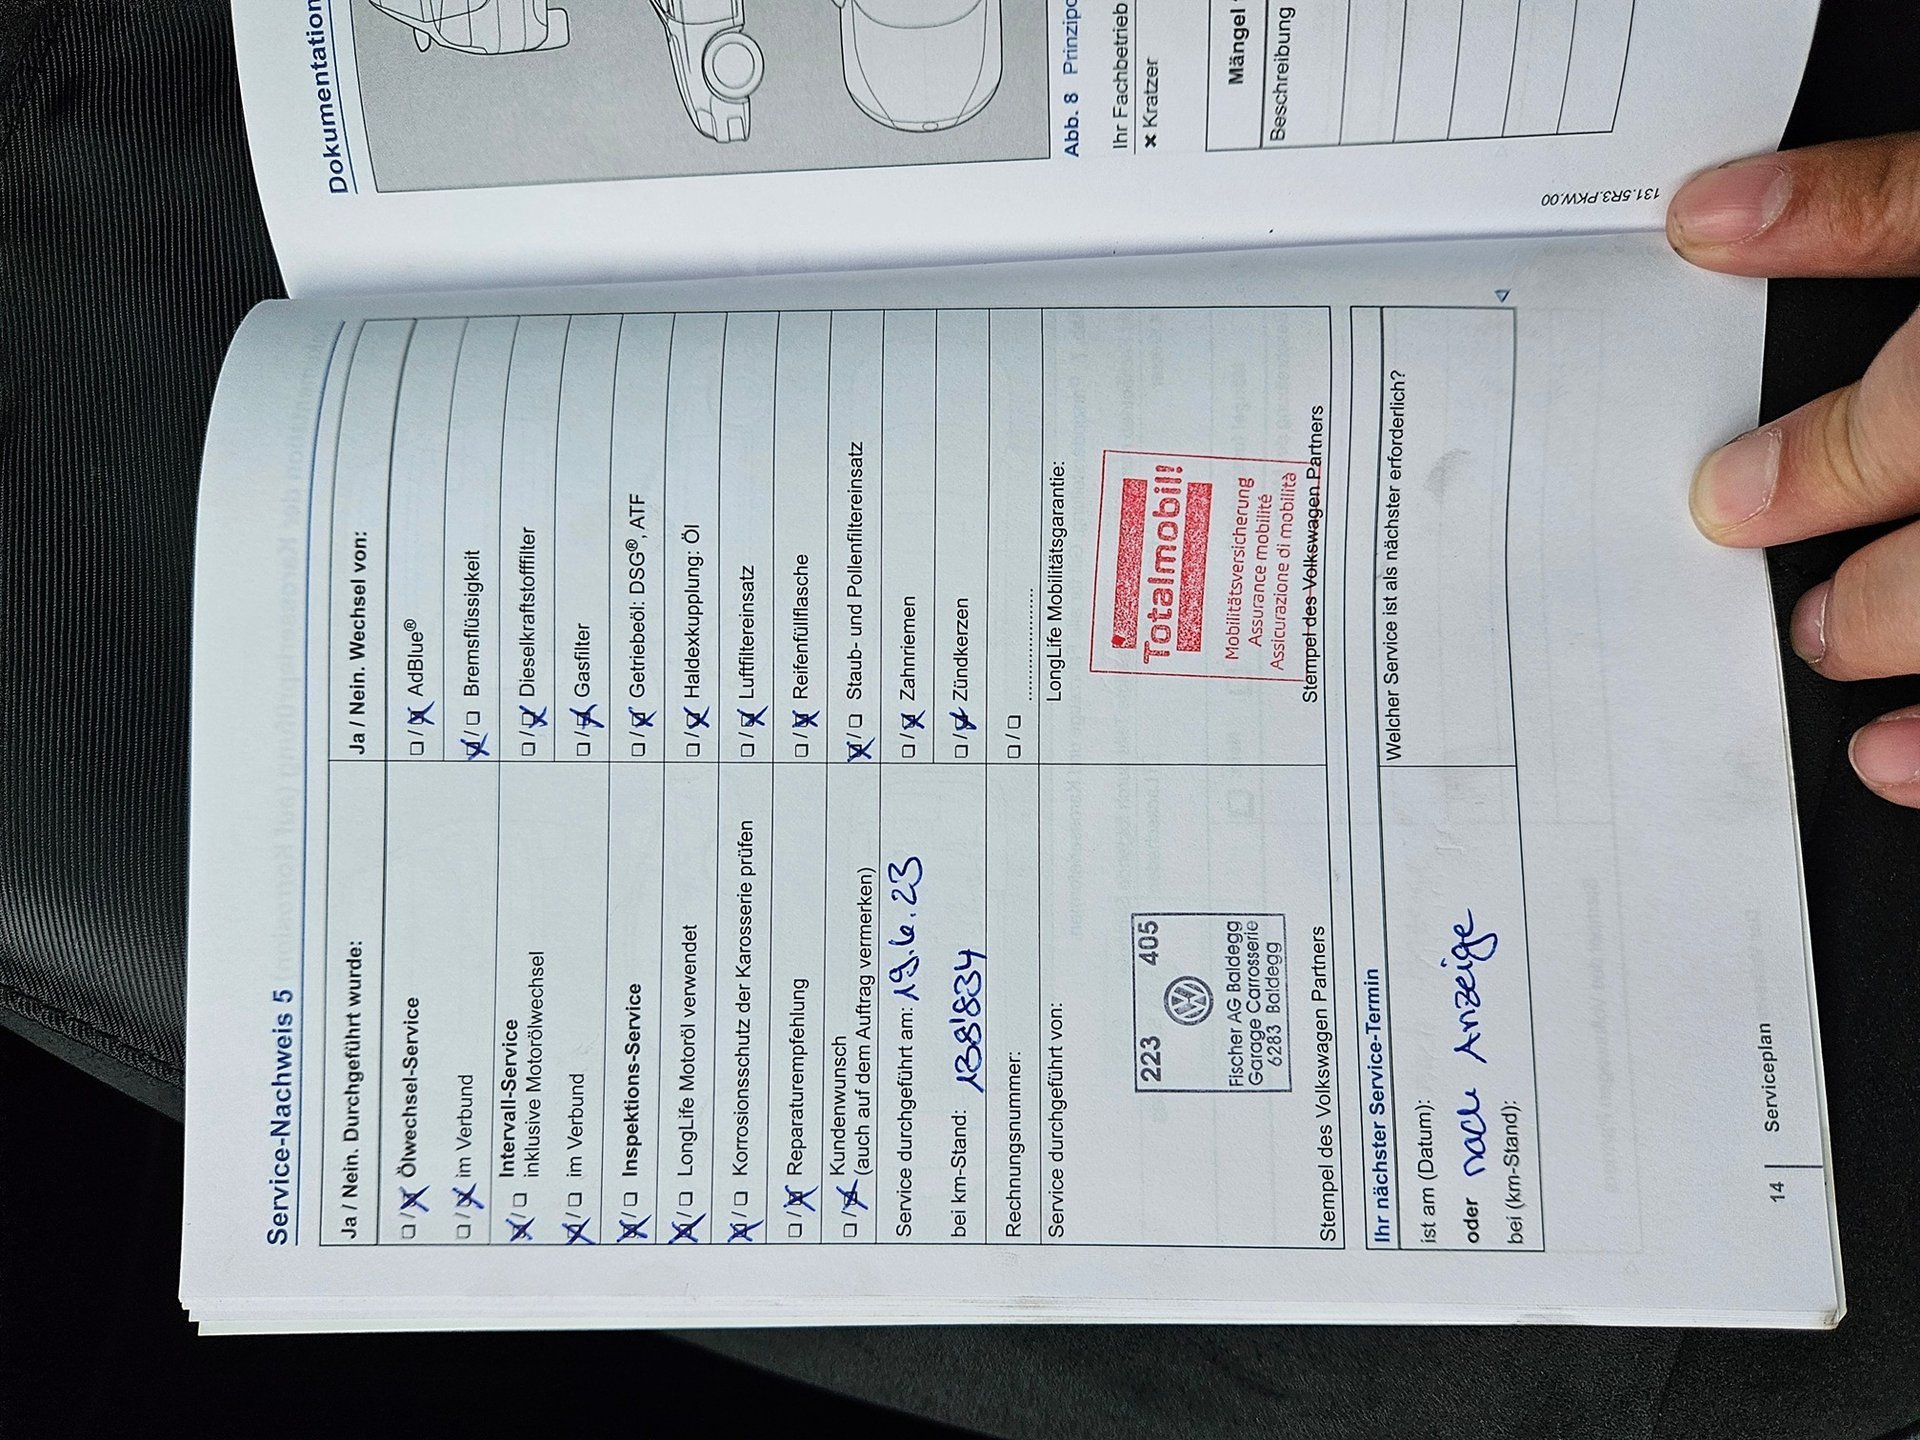 Service-Nachweis 5
Ja / Nein. Durchgeführt wurde:
☐ / ☒ Ölwechsel-Service
☐ / ☒ im Verbund
☒ / ☐ Intervall-Service
inklusive Motorölwechsel
☒ / ☐ im Verbund
☒ / ☐ Inspektions-Service
☒ / ☐ LongLife Motoröl verwendet
☒ / ☐ Korrosionsschutz der Karosserie prüfen
☐ / ☒ Reparaturempfehlung
☐ / ☒ Kundenwunsch
(auch auf dem Auftrag vermerken)
Service durchgeführt am: 19.6.23
bei km-Stand: 138'834
Rechnungsnummer:
Service durchgeführt von:
223 405
Fischer AG Baldegg
Garage Carrosserie
6283 Baldegg
Stempel des Volkswagen Partners
Ja / Nein. Wechsel von:
☐ / ☒ AdBlue®
☒ / ☐ Bremsflüssigkeit
☐ / ☒ Dieselkraftstofffilter
☐ / ☒ Gasfilter
☐ / ☒ Getriebeöl: DSG®, ATF
☐ / ☒ Haldexkupplung: Öl
☐ / ☒ Luftfiltereinsatz
☐ / ☒ Reifenfüllflasche
☒ / ☐ Staub- und Pollenfiltereinsatz
☐ / ☒ Zahnriemen
☐ / ☒ Zündkerzen
☐ / ☐ ....................
LongLife Mobilitätsgarantie:
Totalmobil!
Mobilitätsversicherung
Assurance mobilité
Assicurazione di mobilità
Stempel des Volkswagen Partners
Ihr nächster Service-Termin
ist am (Datum):
oder nach Anzeige
bei (km-Stand):
Welcher Service ist als nächster erforderlich?
14 Serviceplan
Dokumentation
Abb. 8 Prinzip
Ihr Fachbetrieb
× Kratzer
Mängel
Beschreibung
131.5R3.PKW.00